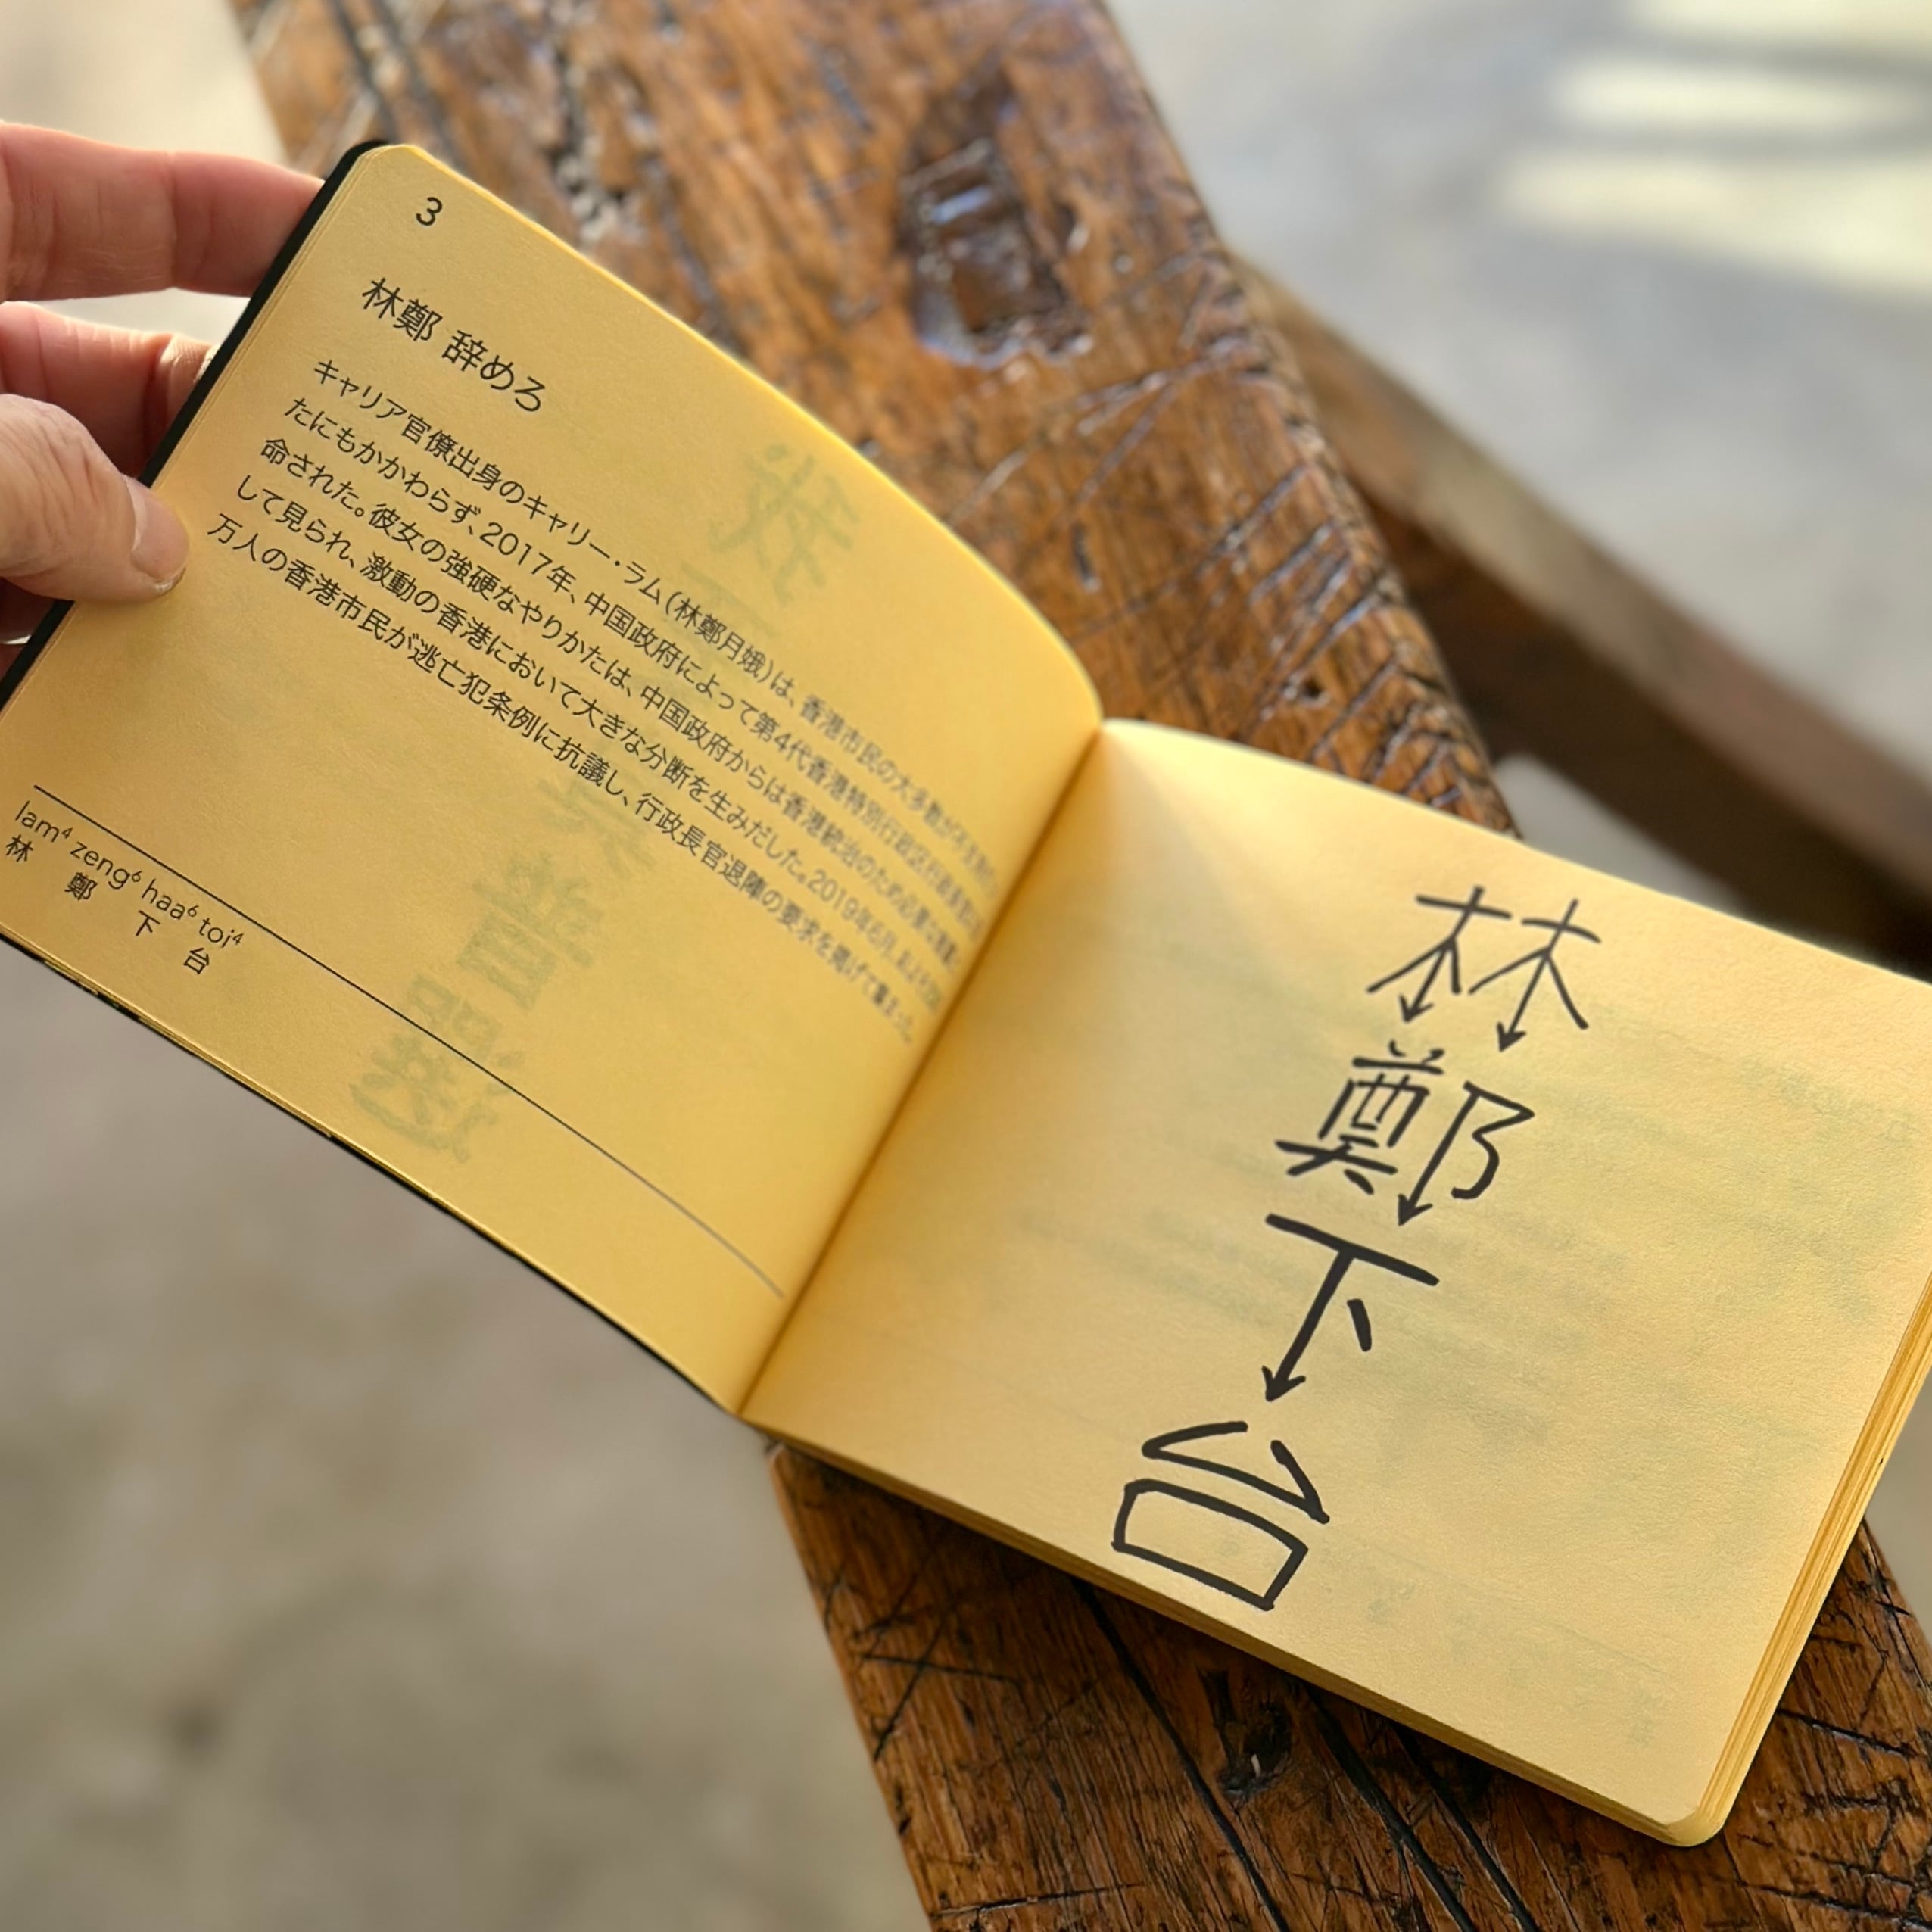 3
林鄭 辞めろ
キャリア官僚出身のキャリー・ラム(林鄭月娥)は、香港市民の大多数が
たにもかかわらず、2017年、中国政府によって第4代香港特別行政区行政長官に
命された。彼女の強硬なやりかたは、中国政府からは香港統治のため必要な
して見られ、激動の香港において大きな分断を生みだした。2019年6月、
万人の香港市民が逃亡犯条例に抗議し、行政長官退陣の要求を掲げて集まった。
lam⁴ zeng⁶ haa⁶ toi⁴
林 鄭 下 台
林
鄭
下
台